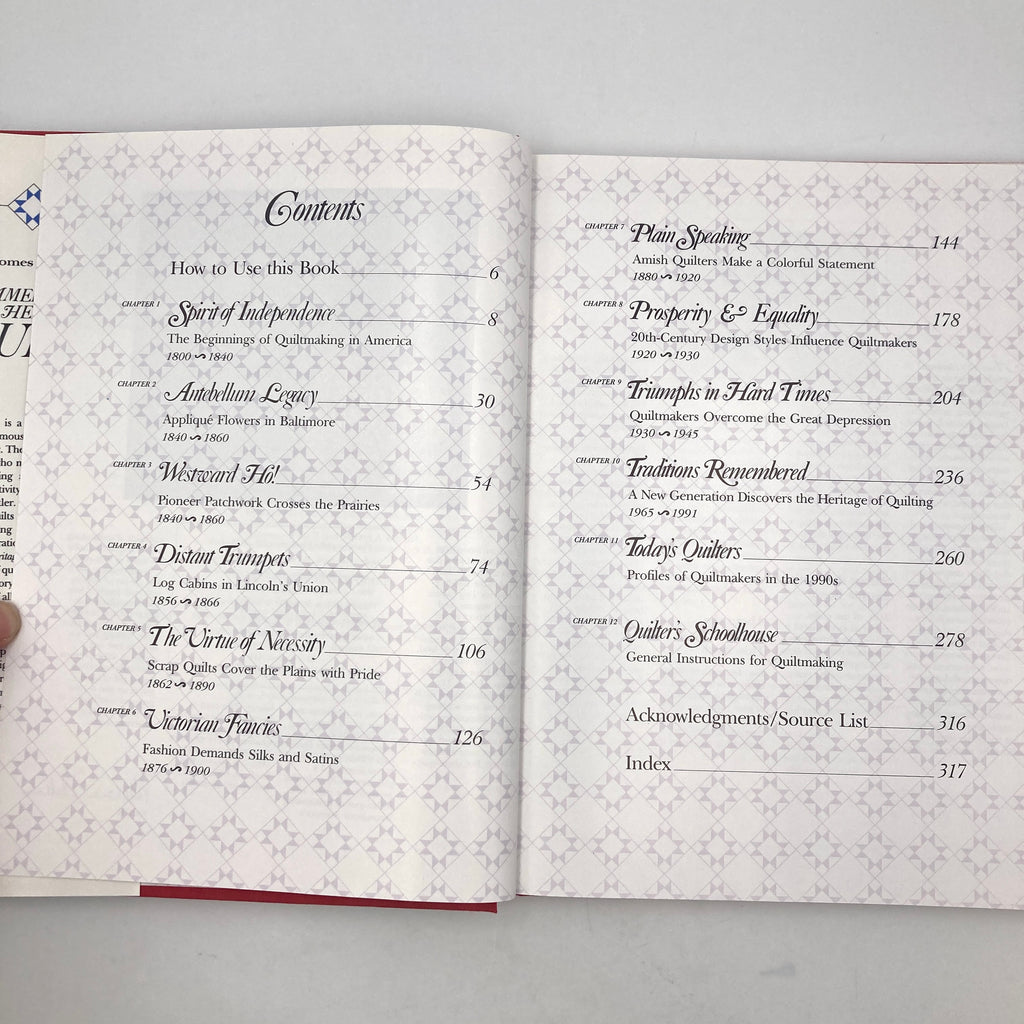 Contents
How to Use this Book 6
CHAPTER 1 Spirit of Independence 8
The Beginnings of Quiltmaking in America
1800 ~ 1840
CHAPTER 2 Antebellum Legacy 30
Appliqué Flowers in Baltimore
1840 ~ 1860
CHAPTER 3 Westward Ho! 54
Pioneer Patchwork Crosses the Prairies
1840 ~ 1860
CHAPTER 4 Distant Trumpets 74
Log Cabins in Lincoln's Union
1856 ~ 1866
CHAPTER 5 The Virtue of Necessity 106
Scrap Quilts Cover the Plains with Pride
1862 ~ 1890
CHAPTER 6 Victorian Fancies 126
Fashion Demands Silks and Satins
1876 ~ 1900
CHAPTER 7 Plain Speaking 144
Amish Quilters Make a Colorful Statement
1880 ~ 1920
CHAPTER 8 Prosperity & Equality 178
20th-Century Design Styles Influence Quiltmakers
1920 ~ 1930
CHAPTER 9 Triumphs in Hard Times 204
Quiltmakers Overcome the Great Depression
1930 ~ 1945
CHAPTER 10 Traditions Remembered 236
A New Generation Discovers the Heritage of Quilting
1965 ~ 1991
CHAPTER 11 Today's Quilters 260
Profiles of Quiltmakers in the 1990s
CHAPTER 12 Quilter's Schoolhouse 278
General Instructions for Quiltmaking
Acknowledgments/Source List 316
Index 317